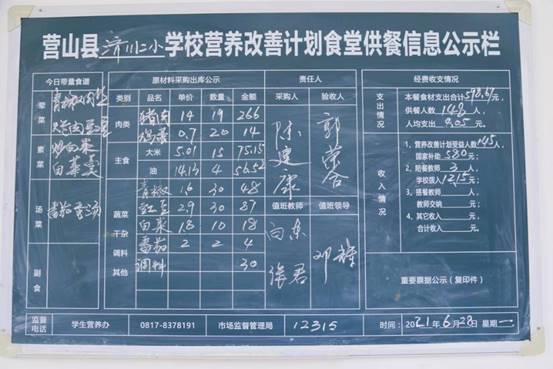 营山县济川二小学校营养改善计划食堂供餐信息公示栏
今日带量食谱
荤菜
素菜
炒白菜
汤菜
副食
原材料采购出库公示
类别 品名 单价 数量 金额
肉类 猪肉 14 19 266
鸡蛋 0.7 20 14
主食 大米 5.01 15 75.15
油 14.13 4 56.52
蔬菜 青椒 1.6 30 48
豇豆 2.9 30 87
干杂 白菜 1.8 10 18
调料 番茄 2 2 4
其他 调料 30
责任人
采购人 验收人
陈建康
值班教师 值班领导
徐君
邓
经费收支情况
支出情况
本餐食材支出合计598.67元
供餐人数 148人
人均支出 元
收入情况
1、营养改善计划受益人数145人
国家补助580元；
2、陪餐教师3人
学校拨入12.15元；
3、搭餐教师 人
教师交纳 元；
4、其它收入 元
合计收入 元；
重要票据公示（复印件）
监督电话 学生营养办 0817-8378191 市场监督管理局 12315 时间：2021年6月28日 星期一